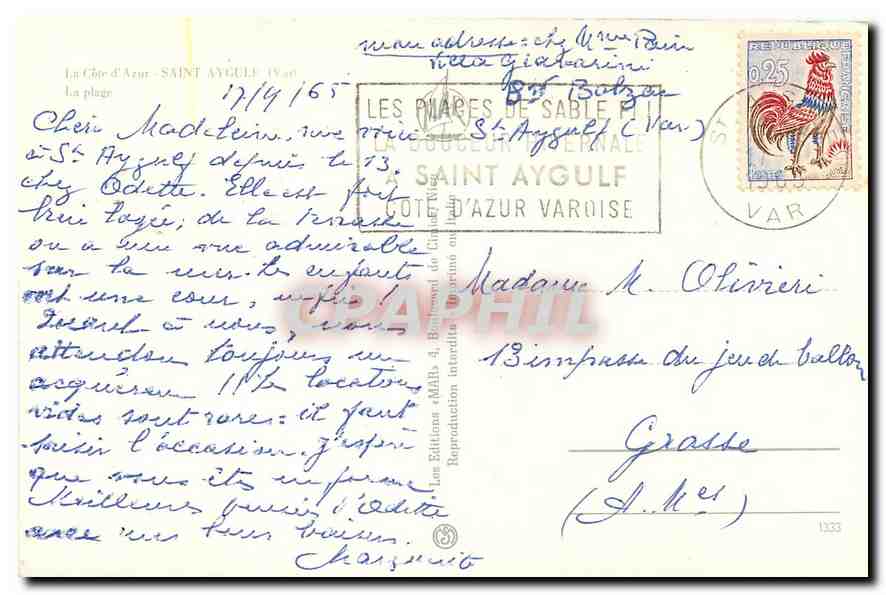 La Côte d'Azur - SAINT AYGULF (Var)
La plage
mon adresse = chez Mme Pain
Villa Giavarini
Bd Balzac
St Aygulf (Var)
17/9/65
Chère Madeleine, me voici
à St Aygulf depuis le 13
chez Odette. Elle est fort
bien logée; de la terrasse
on a une vue admirable
sur la mer. Les enfants
ont une cour, enfin!
Quant à nous, nous
attendons toujours un
acquéreur!! Les locations
vides sont rares = il faut
saisir l'occasion. J'espère
que vous êtes en forme
Meilleures pensées d'Odette
avec mes bons baisers.
Marguerite
Les Editions «MAR» 4, Boulevard de Cimiez, Nice
Reproduction interdite Imprimé en Italie
LES PLAGES DE SABLE FIN
LA DOUCEUR HIVERNALE
A SAINT AYGULF
COTE D'AZUR VAROISE
REPUBLIQUE FRANÇAISE
0,25
ST
1965
VAR
Madame M. Olivieri
13 impasse du jeu de ballon
Grasse
(A. Mes)
1333
CPAPHIL